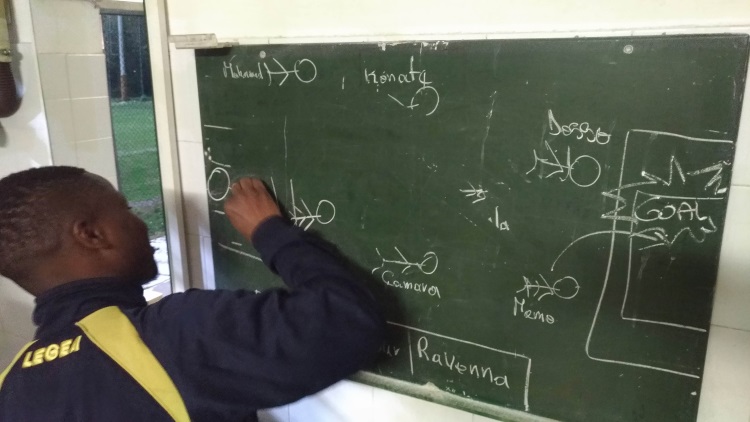 Mohamed
Konatç
Dosso
GOAL
Camara
Momo
Ravenna
LEGEA